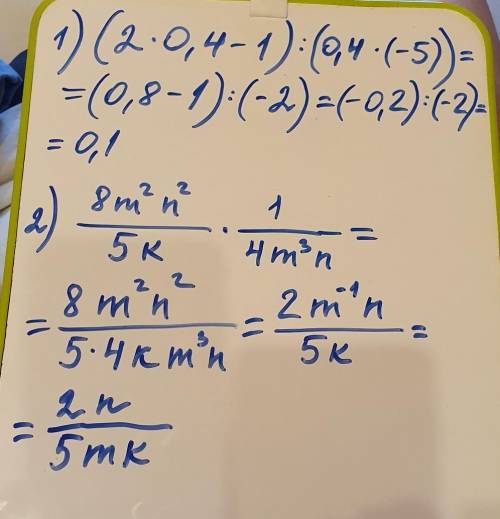 1) (2·0,4-1):(0,4·(-5))=
=(0,8-1):(-2)=(-0,2):(-2)=
=0,1
2) 8m²n²/5k · 1/4m³n =
= 8m²n²/5·4km³n = 2m⁻¹n/5k =
= 2n/5mk